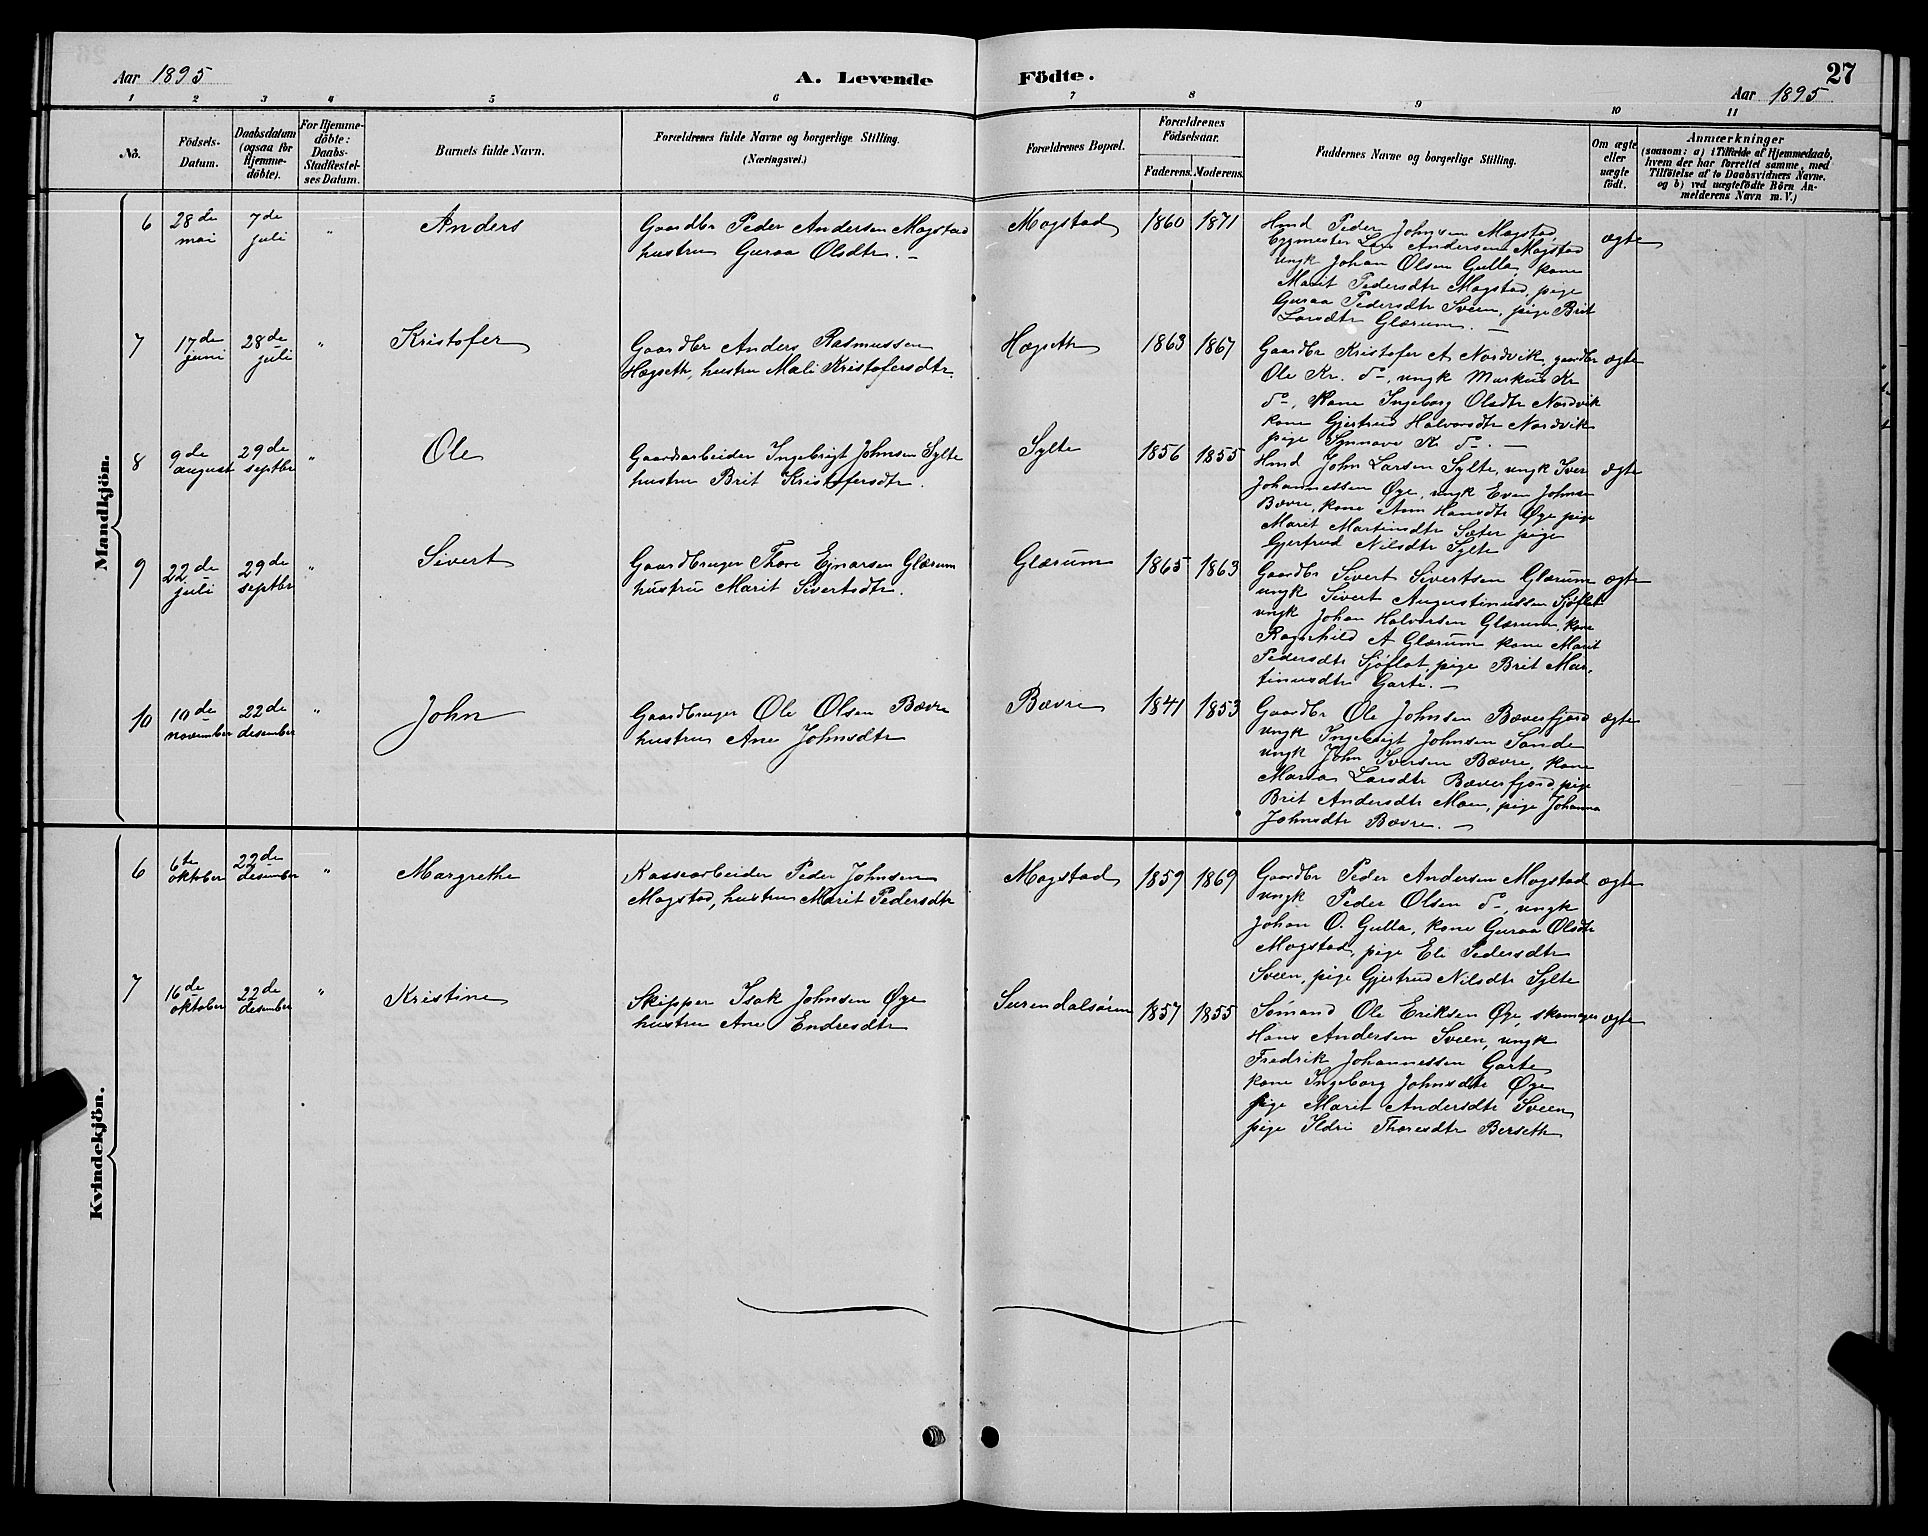 Aar 1895
A. Levende Födte.
27
Aar 1895
1 2 3 4 5 6 7 8 9 10 11
No.
Födsels-
Datum.
Daabsdatum
(ogsaa for
Hjemme-
döbte).
For Hjemme-
döbte:
Daabs-
Stadfæstel-
ses Datum.
Barnets fulde Navn.
Forældrenes fulde Navne og borgerlige Stilling.
(Næringsvei.)
Forældrenes Bopæl.
Forældrenes
Födselsaar.
Faderens. Moderens.
Faddernes Navne og borgerlige Stilling.
Om ægte
eller
uægte
födt.
Anmærkninger
(saasom: a) i Tilfælde af Hjemmedaab,
hvem der har forrettet samme, med
Tilföielse af to Daabsvidners Navne.
og b) ved uægtefödte Börn An-
melderens Navn m. V.)
Mandkjön.
6
28de
mai
7de
juli
"
Anders
Gaardbr Peder Andersen Mogstad
hustru Guraa Olsdtr. —
Mogstad
1860 1871
Hmd Peder Johnsen Mogstad,
Bygmester Lars Andersen Mogstad
ungk Johan Olsen Gulla, kone
Marit Pedersdtr Mogstad, pige
Guraa Pedersdtr Sveen, pige Brit
Larsdtr Glærum. —
ægte
7
17de
juni
28de
juli
"
Kristofer
Gaardbr Anders Rasmussen
Hægseth, hustru Mali Kristofersdtr.
Hægseth
1863 1867
Gaardbr Kristofer A Nordvik, gaardbr
Ole Kr. do, ungk Markus Kr
do, kone Ingeborg Olsdtr Nordvik
kone Gjertrud Halvorsdtr Nordvik
pige Synnøve K do. —
ægte
8
9de
august
29de
septbr
"
Ole
Gaardarbeider Ingebrigt Johnsen Sylte
hustru Brit Kristofersdtr.
Sylte
1856 1855
Hmd John Larsen Sylte, ungk Iver
Johannessen Øye, ungk Even Johnsen
Bævre, kone Ann Hansdtr Øye pige
Marit Martinsdtr Sæter pige
Gjertrud Nilsdtr Sylte
ægte
9
22de
juli
29de
septbr
"
Sivert
Gaardbruger Thore Ejnarsen Glærum
hustru Marit Sivertsdtr.
Glærum
1865 1863
Gaardbr Sivert Sivertsen Glærum
ungk Sivert Augustinussen Sjøflot
ungk Johan Halvorsen Glærum, kone
Ragnhild A Glærum kone Marit
Pedersdtr Sjøflot, pige Brit Mar-
tinusdtr Garte. —
ægte
10
10de
november
22de
desember
"
John
Gaardbruger Ole Olsen Bævre
hustru Ane Johnsdtr
Bævre
1841 1853
Gaardbr Ole Johnsen Bæverfjord
ungk Ingebrigt Johnsen Sande
ungk John Iversen Bævre, kone
Maria Larsdtr Bæverfjord, pige
Brit Andersdtr Moen, pige Johanna
Johnsdtr Bævre. —
ægte
Kvindekjön.
6
6te
oktober
22de
desember
"
Margrethe
Kassearbeider Peder Johnsen
Mogstad, hustru Marit Pedersdtr
Mogstad
1859 1869
Gaardbr Peder Andersen Mogstad
ungk Peder Olsen do, ungk
Johan O. Gulla, kone Guraa Olsdtr
Mogstad, pige Eli Pedersdtr
Sveen, pige Gjertrud Nilsdtr Sylte
ægte
7
16de
oktober
22de
desember
"
Kristine
Skipper Isak Johnsen Øye
hustru Ane Endresdtr
Surendalsøren
1857 1855
Sømand Ole Eriksen Øye, skomager
Hans Andersen Sveen, ungk
Fredrik Johannessen Garte
kone Ingeborg Johnsdtr Øye
pige Marit Andersdtr Sveen
pige Ildri Thoresdtr Berseth
ægte